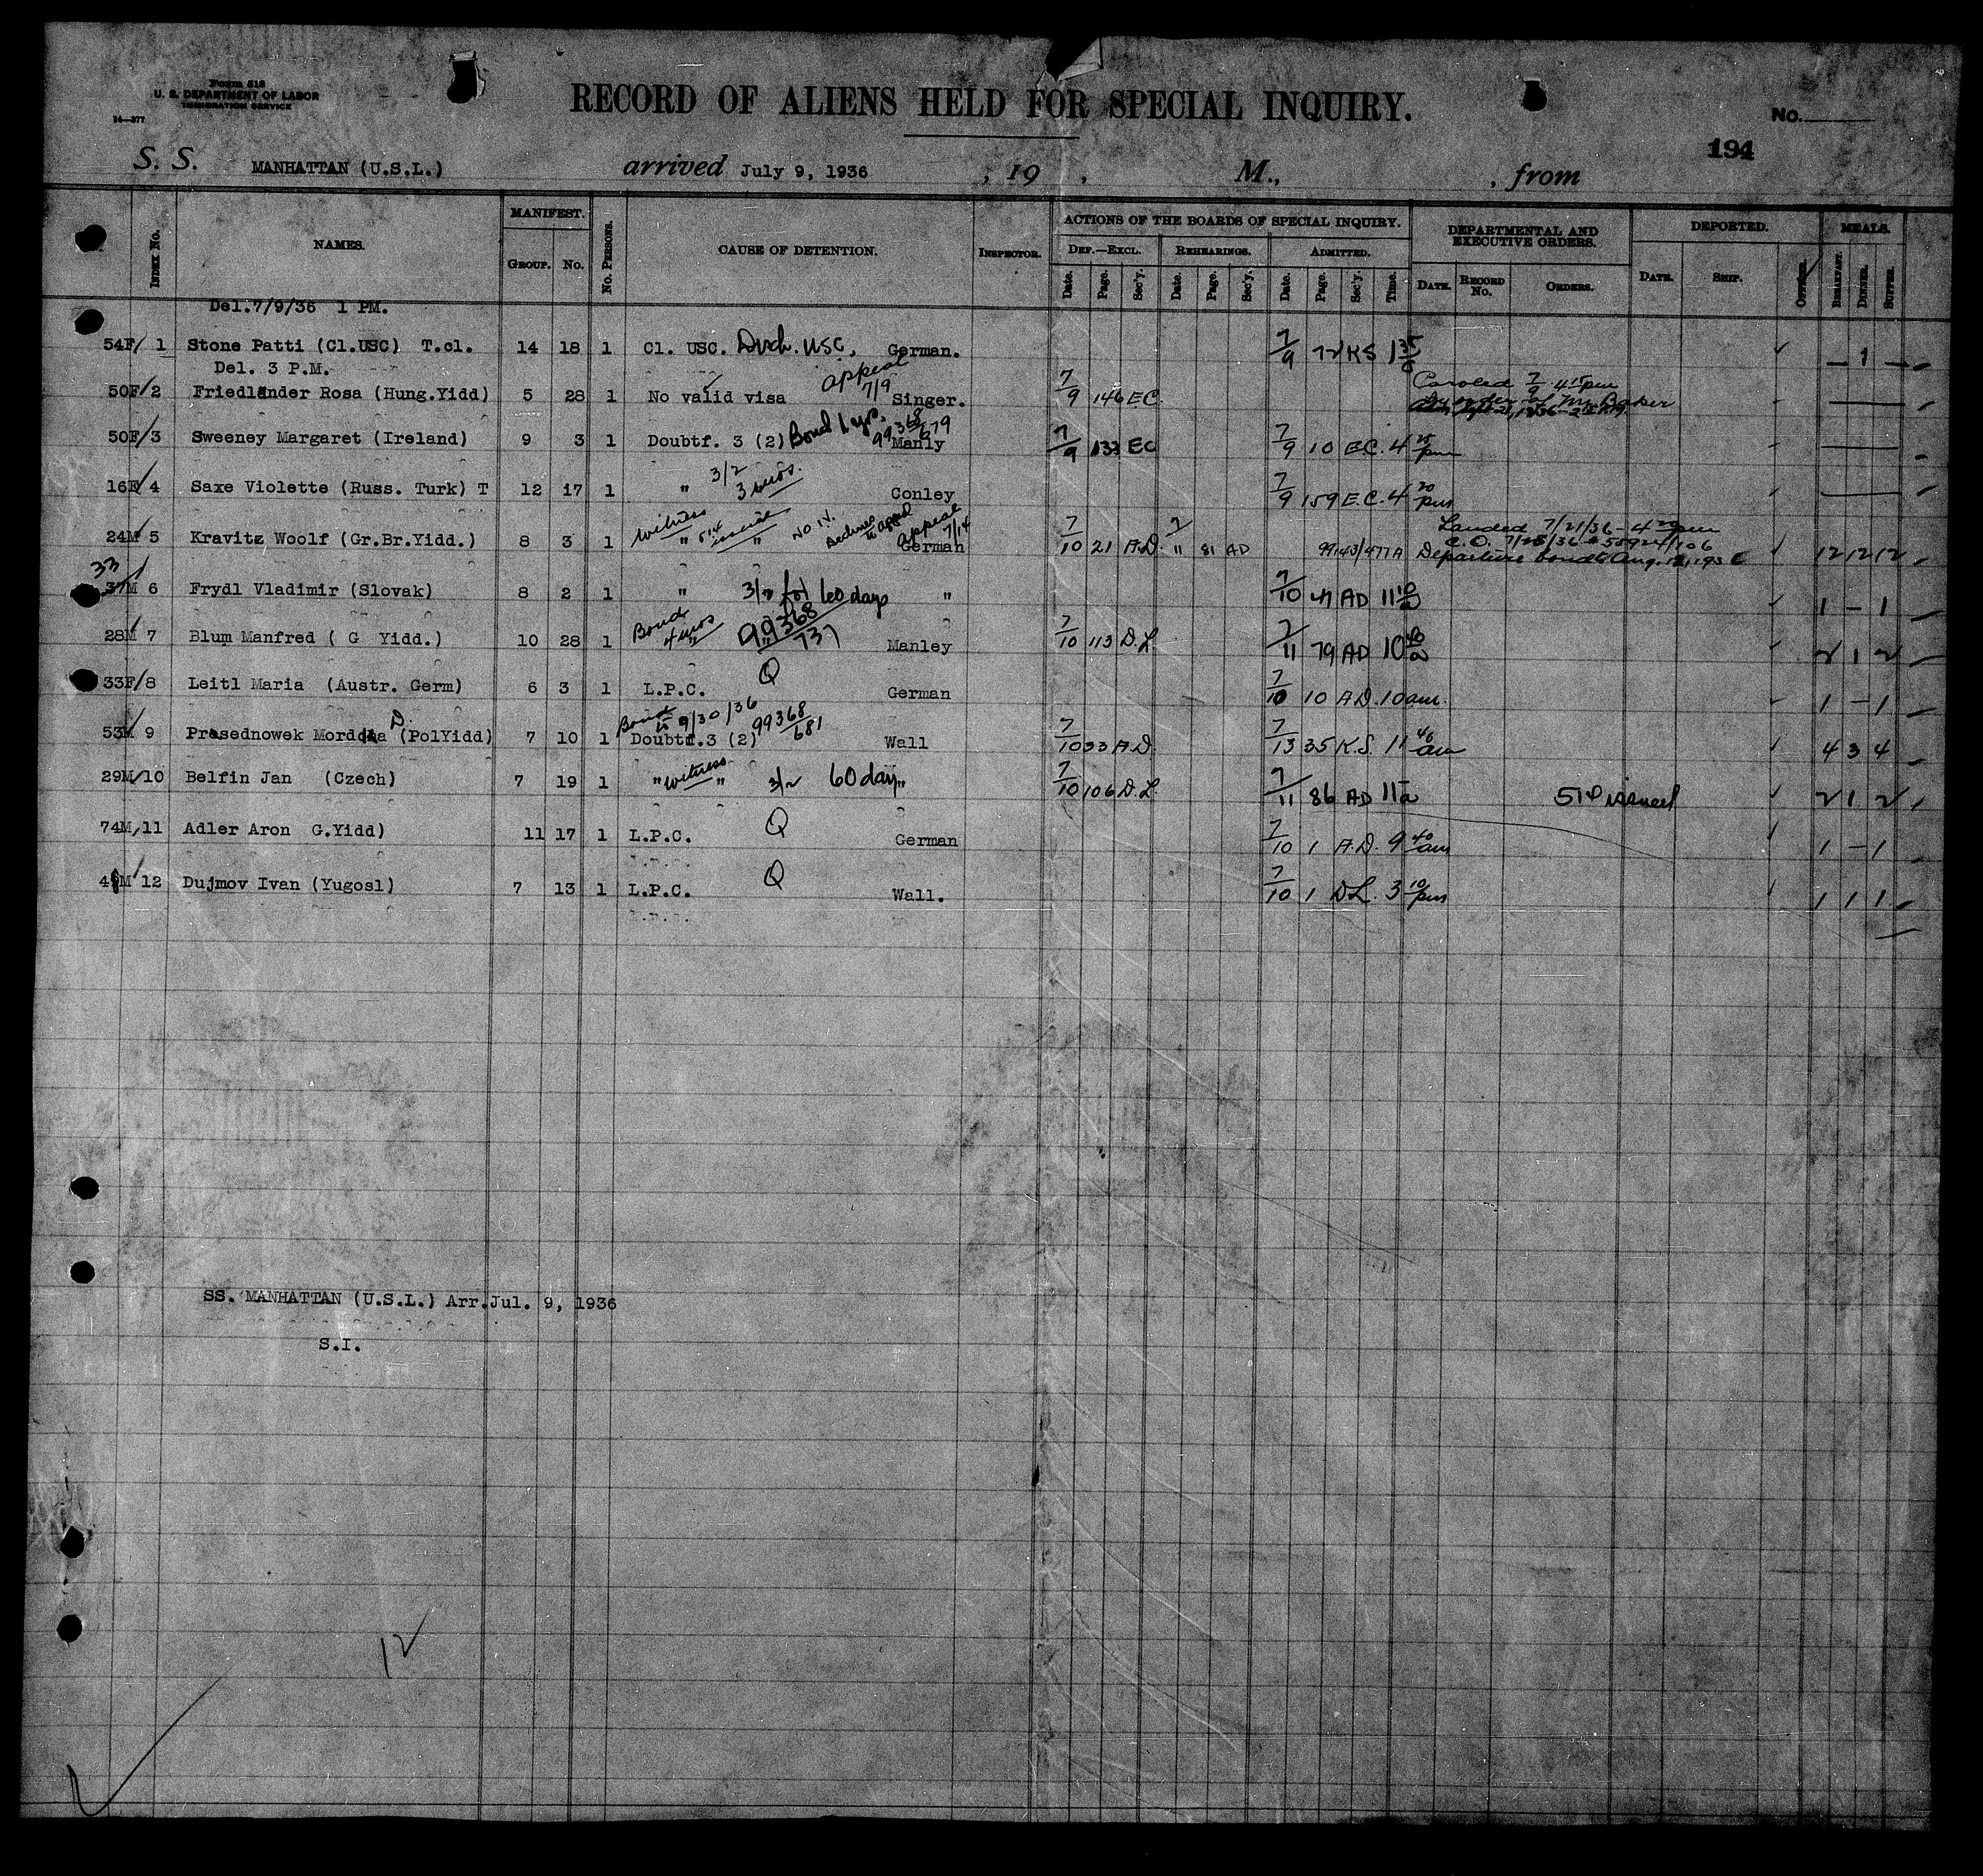 Form 518
U. S. DEPARTMENT OF LABOR
IMMIGRATION SERVICE
14—377
RECORD OF ALIENS HELD FOR SPECIAL INQUIRY.
No.
194
S. S. MANHATTAN (U.S.L.) arrived July 9, 1936 , 19 , M., , from
Index No. NAMES. MANIFEST. Group. No. No. Persons. CAUSE OF DETENTION. Inspector. ACTIONS OF THE BOARDS OF SPECIAL INQUIRY. Def.—Excl. Date. Page. Sec'y. Rehearings. Date. Page. Sec'y. Admitted. Date. Page. Sec'y. Time. DEPARTMENTAL AND EXECUTIVE ORDERS. Date. Record No. Orders. DEPORTED. Date. Ship. Officer. MEALS. Breakfast. Dinner. Supper.
Del.7/9/36 1 PM.
54F/ 1 Stone Patti (Cl.USC) T.cl. 14 18 1 Cl. USC. Disch. USC. German. 7/9 72 KS 1 35 — 1 —
Del. 3 P.M.
appeal 7/9
Paroled 7/9 4 15 pm
50F/2 Friedländer Rosa (Hung.Yidd) 5 28 1 No valid visa Singer. 7/9 146 EC by order of Mr. Baker
50F/3 Sweeney Margaret (Ireland) 9 3 1 Doubtf. 3 (2) Bond 1 yr. 99368/679 Manly 7/9 133 EC 7/9 10 EC. 4 25 pm
16F/ 4 Saxe Violette (Russ. Turk) T 12 17 1 " 3/2 3 mos. Conley 7/9 159 E.C. 4 20 pm
Witness 514 issued No N. appeal 7/14
Landed 7/21/36 - 4 20 pm
24M 5 Kravitz Woolf (Gr.Br.Yidd.) 8 3 1 " " German 7/10 21 A.D. 7/" 81 AD 99143/477A C.O. 7/25/36 # 55924/106
Departure bond to Aug. 12, 12 12 12
33
37M 6 Frydl Vladimir (Slovak) 8 2 1 " 3/2 for 60 days " 7/10 47 AD 11 10 a 1 — 1
28M 7 Blum Manfred ( G Yidd.) 10 28 1 Bond 4 mos " 99368/737 Manley 7/10 113 D.L. 7/11 79 AD 10 40 a 2 1 2
33F/8 Leitl Maria (Austr. Germ) 6 3 1 L.P.C. Q German 7/10 10 A.D. 10 am. 1 — 1
Bond to 9/30/36 99368/681
53M 9 Prasednowek Mordcha (PolYidd) 7 10 1 Doubtf.3 (2) Wall 7/10 33 A.D. 7/13 35 K.S. 11 40 am 4 3 4
29M/10 Belfin Jan (Czech) 7 19 1 " witness " 3/2 60 days " 7/10 106 D.L. 7/11 86 AD 11 a 514 issued 2 1 2
74M/11 Adler Aron G.Yidd) 11 17 1 L.P.C. Q German 7/10 1 A.D. 9 40 am 1 — 1
M 12 Dujmov Ivan (Yugosl) 7 13 1 L.P.C. Q Wall. 7/10 1 DL. 3 10 pm 1 1 1
SS. MANHATTAN (U.S.L.) Arr.Jul. 9, 1936
S.I.
12